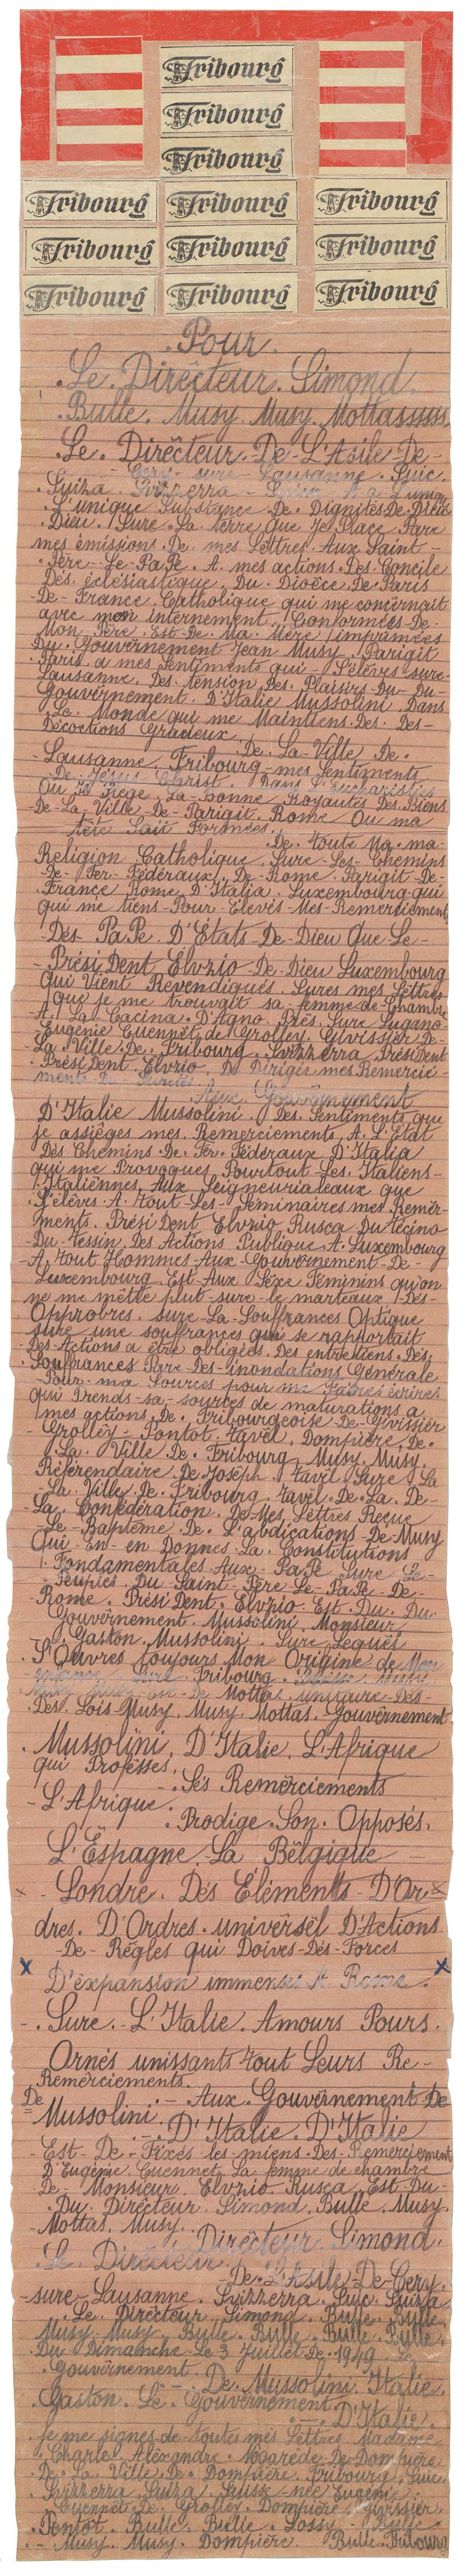 Fribourg
Fribourg
Fribourg
Fribourg Fribourg Fribourg
Fribourg Fribourg Fribourg
Fribourg Fribourg Fribourg
Pour.
Le Directeur. Simond.
Bulle. Musy. Musy. Mottas
Le. Directeur. De. L'Asile. De.
Cery. sure. Lausanne. Suic.
Suiza. Svizzerra
L'unique Substance. De. Dignités. De. Dieu
Dieu. Sure. La terre que je Place. Pare
mes émissions. De. mes Lettres. Aux. Saint.
Père. Le. PaPe. A. mes actions. Des. Concile
Dés. éclésiastique. Du. Dioèce. De. Paris
De. France. Catholique qui me concernait
avec mon internement. Conformées. De.
Mon. Père. Est. De. Ma. Mère imprimées
Du. Gouvernement Jean Musy. Parigit
Paris. a mes Sentiments qui. S'élèves. sure.
Lausanne. Des. tension. Des. Plaisirs. Du. Du.
Gouvernement. D'Italie Mussolini. Dans
Le. Monde qui me Maintiens. Des. Des.
Décoctions Gracieux.
De. La. Ville. De.
Lausanne. Fribourg. mes Sentiments
De. Jésus. Christ. Dans. L'Eucharisties
Ou. La Siège. La. Bonne. Royautés. Des. Biens
De. La. Ville. De. Parigit. Rome. Ou ma
tête Sait Formées.
De. toute Ma. ma.
Religion. Catholique. Sure. Les. Chemins
De. Fer. Fédéraux. De. Rome. Parigit. De.
France Rome. D'Italia. Luxembourg. qui
qui me tiens. Pour. Elevés. Mes. Remerciements
Dés. PaPe. D'Etats. De. Dieu Que. Le.
Prési Dent Elvzio. De. Dieu Luxembourg
Qui Vient Revendiqués. Sures mes Lettres
Que je me trouvait sa femme. de. Chambre
A. La Cacina. D'Agno. Prés. Sure. Lugano
Eugénie Guennet. de. Grolley. Givissier. De.
La. Ville. De. Fribourg. Svizzerra. Prési Dent
Prési Dent. Elvzio. De Diriges mes Remercie-
ments.
Aux. Gouvernement
D'Italie Mussolini. Des. Sentiments que
je assiéges mes. Remerciements. A. L'Etat
Dés. Chemins. De. Fer. Fédéraux. D'Italia
qui me Provoques. Pourtout. Les. Italiens.
Italiennes. Aux. Seigneurialeaux que
S'élèves. A. tout. Les. Séminaires mes Remer-
ments. Prési Dent Elvzio. Rusca. Du. ticino
Du. tessin. Des. Actions. Publique. A. Luxembourg
A. tout Hommes. Aux. Gouvernement. De.
Luxembourg. Est. Aux Séxe Féminins qu'on
ne me mêtte plut. sure. le marteaux. Dés.
Opprobres. sure. La. Souffrances Optique
Sure une souffrances qui se rapportait
Des. Actions a être obligées. Des. entretiens. Dés.
Souffrances Pare. Des. inondations Générale
Pour. ma Sources pour me
qui Prends. sa. sources de maturations a
mes actions. De. Fribourgeoise. De. Givissier
Grolley. Pontot. Tavel. Dompière. De.
La. Ville. De. Fribourg. Musy. Musy.
Réferendaire. De. Joseph. Tavel. Sure. La
La. Ville. De. Fribourg. Tavel. De. La. De.
La. Confédération. De. Mes. Lettres Reçue
Le. Baptême. De. L'abdications. De. Musy
Qui. En. en Donnes. La. Constitutions
Fondamentales Aux. PaPe. Sure. Le.
Du. Saint. Père. Le. PaPe. De.
Rome. Prési Dent. Elvzio. Est. Du. Du.
Gouvernement. Mussolini. Monsieur.
Gaston. Mussolini. Sure. Lequel
S'Ouvres toujours Mon Origine. de Mon
enfance. Sure. Fribourg.
De Mottas. unitaire. Des.
Dés. Lois. Musy. Musy. Mottas. Gouvernement.
Mussolini. D'Italie. L'Afrique
qui Professes.
Sés Remerciements
L'Afrique.
Prodige. Son. Opposés.
L'Espagne. La Bélgique
Londre. Dés Eléments. D'Or
dres. D'Ordres. universèl D'Actions.
De. Règles qui Doives. Dés. Forces
D'éxpansion immenses A Rome.
Sure. L'Italie. Amours Pours.
Ornés unissants tout Leurs Re-
Remerciements.
De
Aux. Gouvernement De
Mussolini. D'Italie. D'Italie
Est. De. Fixés les miens. Des. Remerciement
D'Eugénie. Guennet. La femme de chambre
De. Monsieur. Elvzio Rusca. Est. Du.
Du. Directeur. Simond. Bulle. Musy.
Mottas. Musy.
Directeur. Simond.
Le. Directeur.
De. L'Asile. De. Cery.
sure. Lausanne. Svizzerra. Suic. Suiza.
Le. Directeur. Simond. Bulle. Bulle.
Musy. Musy. Bulle. Bulle. Bulle. Bulle.
Du Dimanche. Le 3 Juillet. De. 1949. Le
Gouvernement. De. Mussolini. Italie.
Gaston. Le. Gouvernement.
D'Italie.
Je me signes de toutes mes Lettres Madame
Charle. Aléxandre. De. Dompière
De. La. Ville. De. Dompière. Fribourg. Suic.
Svizzerra. Suiza. née Eugénie.
Guennet. De. Grolley. Dompière. Givissier
Pontot. Bulle. Bulle. Lossy. Bulle.
Musy. Musy. Dompière. Bulle. Fribourg